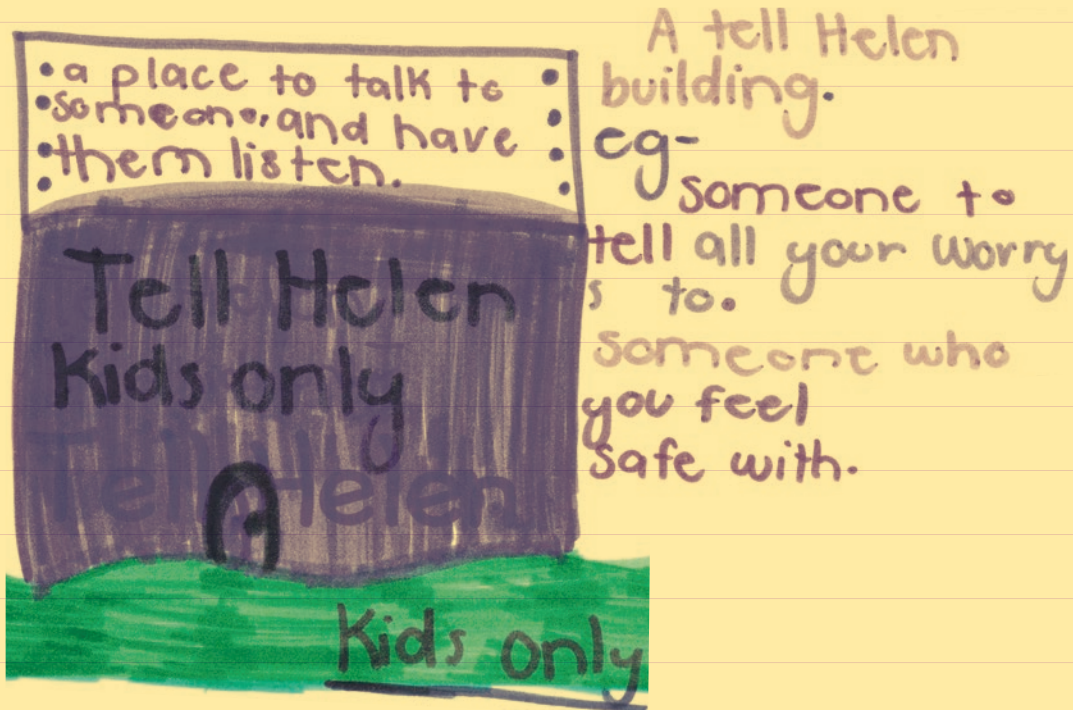 a place to talk to
someone, and have
them listen.
Tell Helen
Kids only
Tell Helen
Kids only
A tell Helen
building.
eg-
someone to
tell all your worry
s to.
someone who
you feel
safe with.